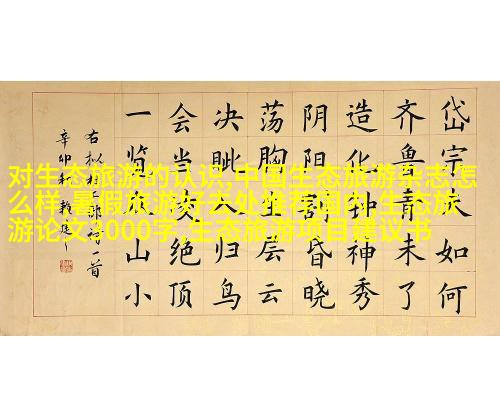 岱宗夫如何
齐鲁青未了
造化钟神秀
阴阳割昏晓
荡胸生层云
决眦入归鸟
会当凌绝顶
一览众山小
右拟杜工部诗一首
辛卯秋
对生态旅游的认识,中国生态旅游杂志怎
么样,暑假旅游好去处推荐国内,生态旅
游论文3000字,生态旅游项目建议书